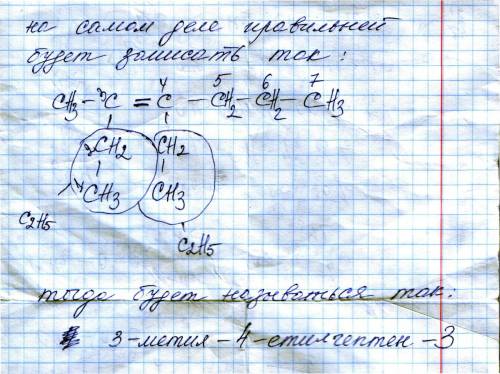 на самом деле правильней
будет записать так:
4 5 6 7
CH3 - 3C = C - CH2 - CH2 - CH3
2CH2 CH2
1CH3 CH3
C2H5
C2H5
тогда будет называться так:
3-метил-4-етилгептен-3